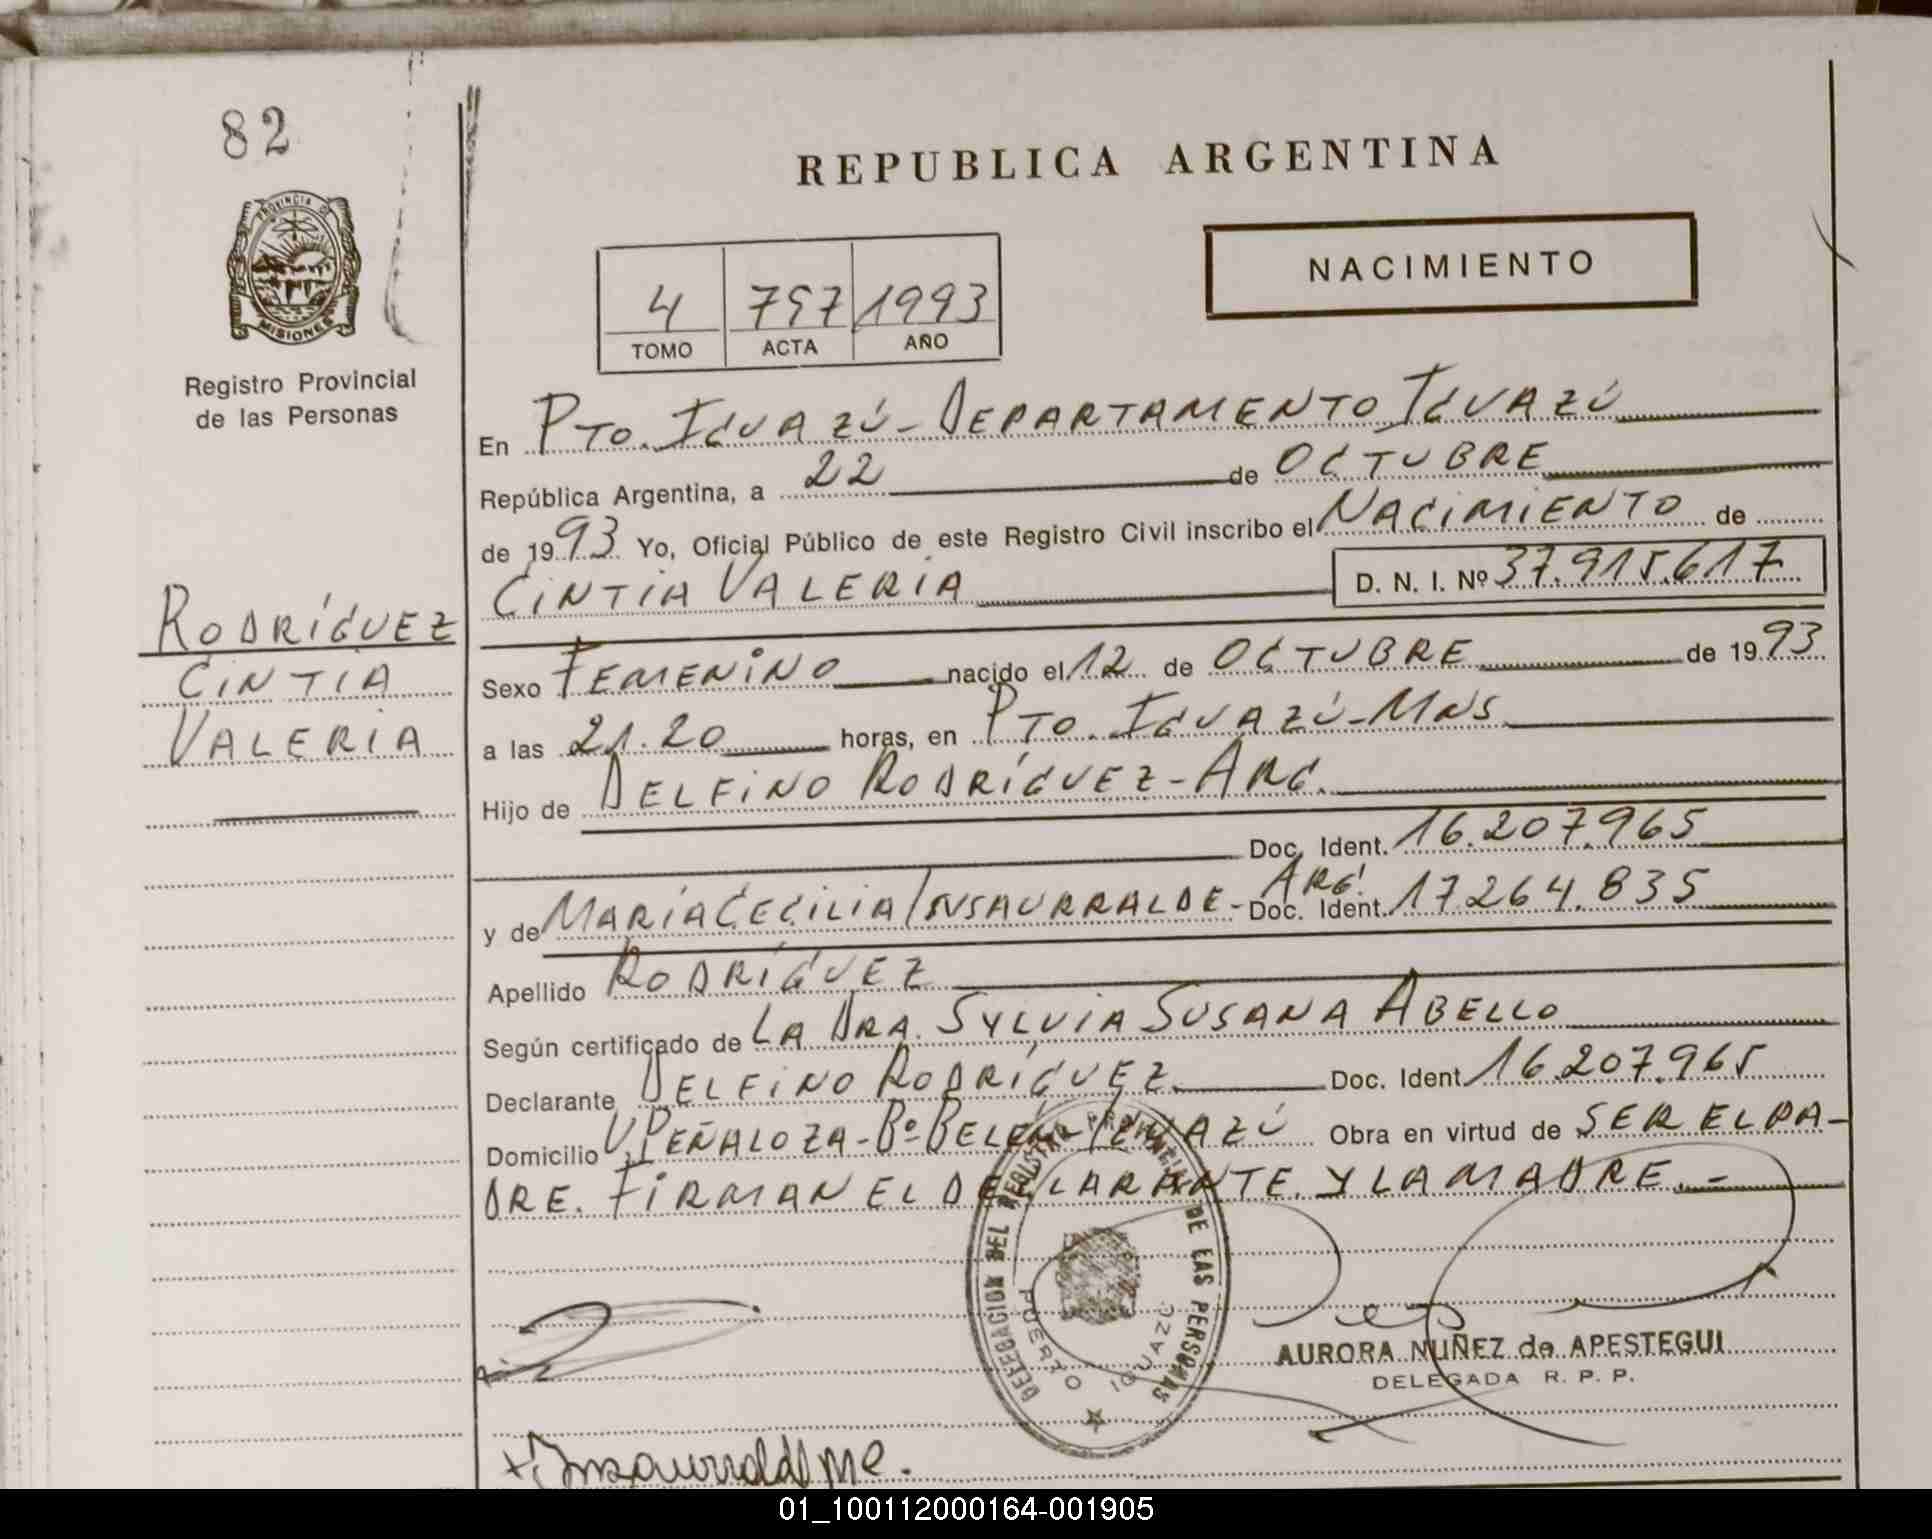 82
PROVINCIA DE
MISIONES
Registro Provincial
de las Personas
REPUBLICA ARGENTINA
NACIMIENTO
4 797 1993
TOMO ACTA AÑO
En PTO. IGUAZÚ - DEPARTAMENTO IGUAZÚ
República Argentina, a 22 de OCTUBRE
de 1993 Yo, Oficial Público de este Registro Civil inscribo el NACIMIENTO de
CINTIA VALERIA D. N. I. Nº 37.915.617
RODRÍGUEZ
CINTIA
VALERIA
Sexo FEMENINO nacido el 12 de OCTUBRE de 1993
a las 21.20 horas, en PTO. IGUAZÚ - MNS
Hijo de DELFINO RODRÍGUEZ - ARG.
Doc. Ident. 16.207.965
y de MARÍA CECILIA INSAURRALDE - ARG. Doc. Ident. 17.264.835
Apellido RODRÍGUEZ
Según certificado de LA DRA. SYLVIA SUSANA ABELLO
Declarante DELFINO RODRÍGUEZ Doc. Ident 16.207.965
Domicilio V. PEÑALOZA - Bº BELÉN - IGUAZÚ Obra en virtud de SER EL PA-
DRE. FIRMAN EL DECLARANTE Y LA MADRE. -
DELEGACION DEL REGISTRO PROVINCIAL DE LAS PERSONAS
PUERTO IGUAZU
AURORA NUÑEZ de APESTEGUI
DELEGADA R. P. P.
Insaurralde
01_100112000164-001905